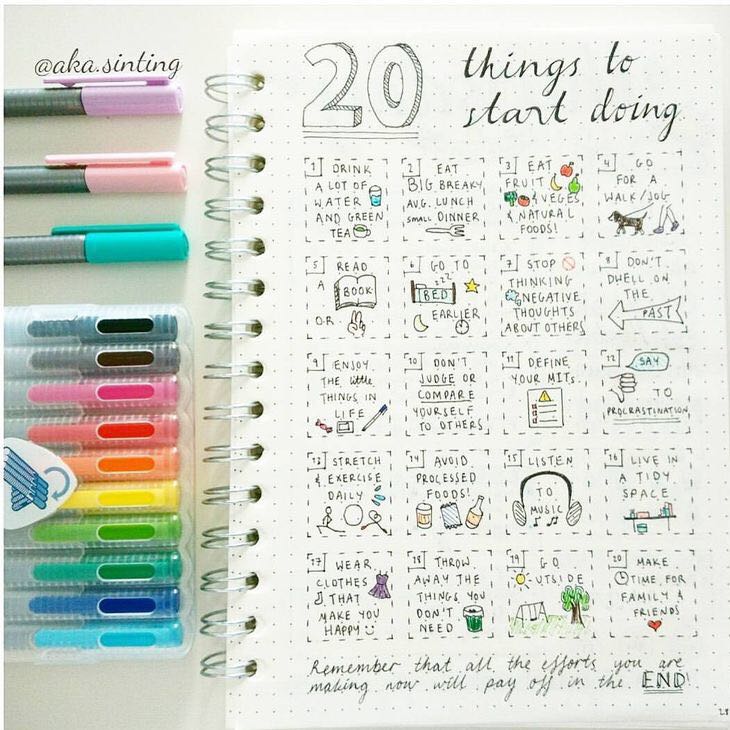 @aka.sinting
20 things to
start doing
1 DRINK
A LOT OF
WATER
AND GREEN
TEA
2 EAT
BIG BREAKY
AVG. LUNCH
SMALL DINNER
3 EAT
FRUIT
& VEGES
& NATURAL
FOODS!
4 GO
FOR A
WALK/JOG
5 READ
A BOOK
OR
6 GO TO
zzz
BED
EARLIER
7 STOP
THINKING
NEGATIVE
THOUGHTS
ABOUT OTHERS
8 DON'T
DWELL ON
THE
PAST
9 ENJOY
THE little
THINGS IN
LIFE
10 DON'T
JUDGE OR
COMPARE
YOURSELF
TO OTHERS
11 DEFINE
YOUR MITs
12 SAY
TO
PROCRASTINATION
13 STRETCH
& EXERCISE
DAILY
14 AVOID
PROCESSED
FOODS!
15 LISTEN
TO
MUSIC
16 LIVE IN
A TIDY
SPACE
17 WEAR
CLOTHES
THAT
MAKE YOU
HAPPY
18 THROW
AWAY THE
THINGS YOU
DON'T
NEED
19 GO
OUTSIDE
20 MAKE
TIME FOR
FAMILY &
FRIENDS
Remember that all the efforts you are
making now will pay off in the END!